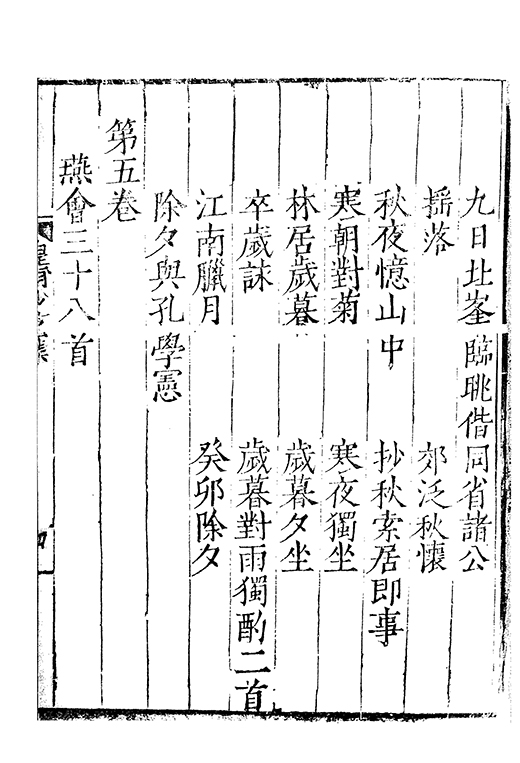 九日北峯臨眺偕同省諸公
搖落　郊泛秋懷
秋夜憶山中　抄秋索居即事
寒朝對菊　寒夜獨坐
林居歲暮　歲暮夕坐
卒歲詠　歲暮對雨獨酌二首
江南臘月　癸卯除夕
除夕與孔學憲
第五卷
燕會三十八首